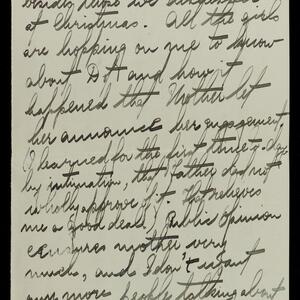 at Christmas. All the girls
are hopping on me to know
about Dot and how it
happened that Mother let
her announce her engagement.
I learned for the first time to-day
by intimation, that Father does not
wholly approve of it. That relieves
me a good deal. Public Opinion
censures mother very
much, and I don't want
any more people talking about